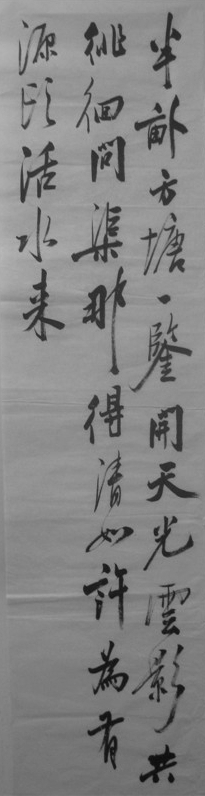 半畝方塘一鑒開天光雲影共
徘徊問渠那得清如許為有
源头活水来